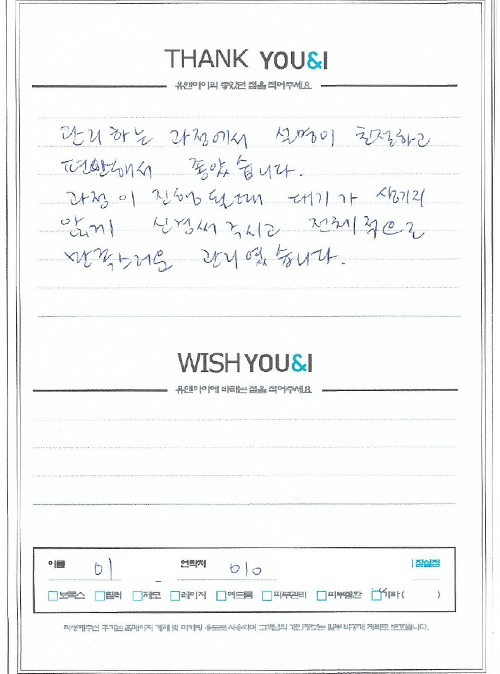 THANK YOU&I
유앤아이의 좋았던 점을 적어주세요
관리하는 과정에서 설명이 친절하고
편안해서 좋았습니다.
과정이 진행될때 대기가 생기지
않게 신경써주시고 전체적으로
만족스러운 관리였습니다.
WISH YOU&I
유앤아이에 바라는 점을 적어주세요
이름 이 연락처 010 잠실점
보톡스 필러 제모 레이저 여드름 피부관리 피부질환 기타 ( )
작성해주신 후기는 홈페이지 게재 및 마케팅 용도로 사용되며 고객님의 개인정보는 일부 비공개 처리로 보호됩니다.